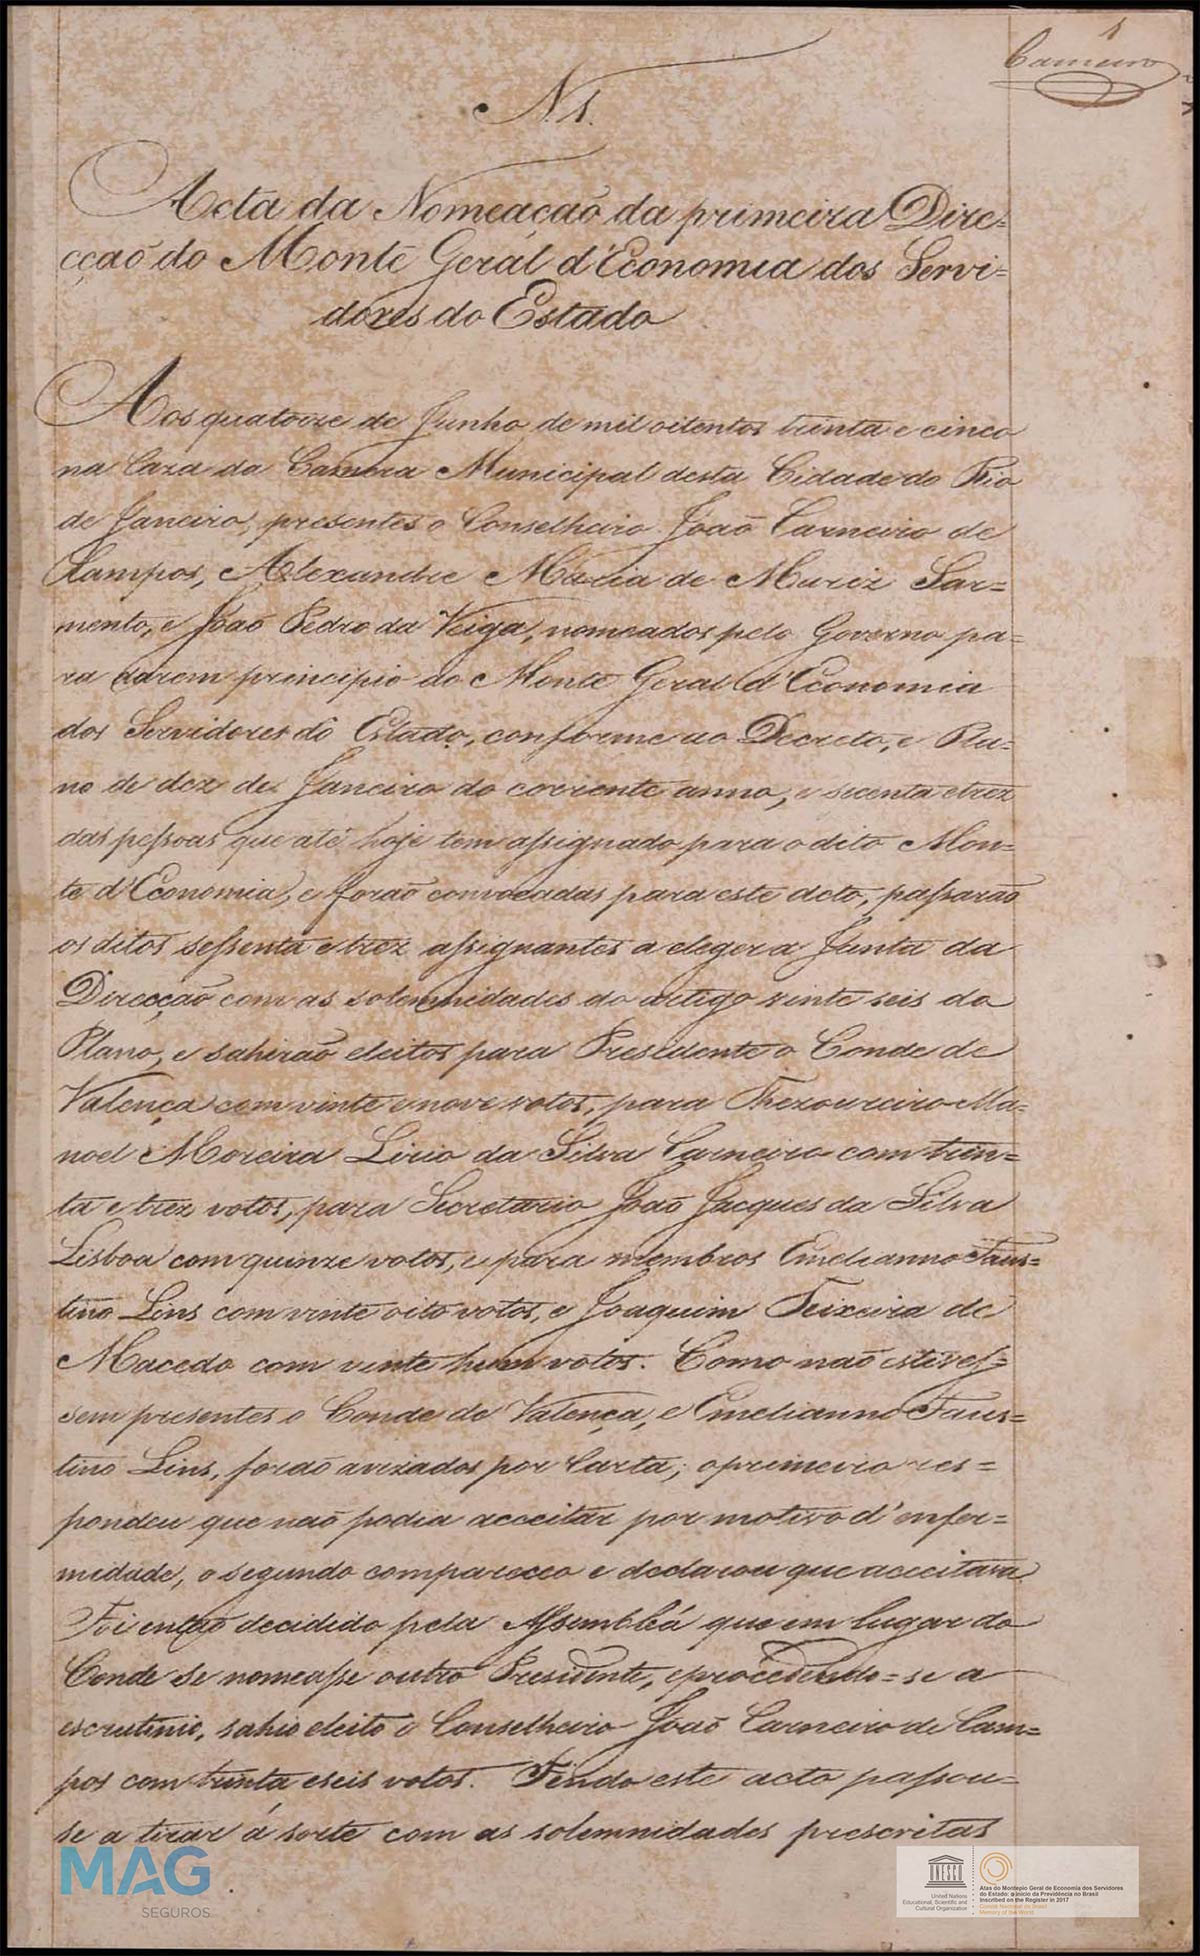 1
Carneiro
N. 1.
Acta da Nomeação da primeira Dire=
cção do Monte Geral d'Economia dos Servi=
dores do Estado
Aos quatorze de Junho de mil oitentos trinta e cinco
na Caza da Camera Municipal desta Cidade do Rio
de Janeiro, presentes o Conselheiro João Carneiro de
Campos, Alexandre Maria de Mariz Sar=
mento, e João Pedro da Veiga, nomeados pelo Governo pa=
ra darem principio ao Monte Geral d'Economia
dos Servidores do Estado, conforme ao Decreto, e Pla=
no de dez de Janeiro do corriente anno, e secenta e trez
das pessoas que até hoje tem assignado para o dito Mon=
te d'Economia, e forão convocadas para este acto, passarão
os ditos sessenta e trez assignantes a eleger a Junta da
Direcção com as solemnidades do artigo vinte seis do
Plano, e sahirão eleitos para Presidente o Conde de
Valença com vinte e nove votos, para Thezoureiro Ma=
noel Moreira Lirio da Silva Carneiro com trin=
ta e trez votos, para Secretario João Jacques da Silva
Lisboa com quinze votos, e para membros Emelianno Faus=
tino Lins com vinte oito votos, e Joaquim Teixeira de
Macedo com vinte hum votos. Como não estives=
sem presentes o Conde de Valença, e Emelianno Faus=
tino Lins, forão avizados por Carta; o primeiro res=
pondeu que não podia acceitar por motivo d'enfer=
midade, o segundo compareceo e declarou que acceitava.
Foi então decidido pela Assembléa que em lugar do
Conde se nomeasse outro Presidente, e procedendo=se a
escrutinio, sahio eleito o Conselheiro João Carneiro de Cam=
pos com trinta e seis votos. Findo este acto passou=
se a tirar á sorte com as solemnidades prescritas
MAG
SEGUROS
UNESCO
United Nations
Educational, Scientific and
Cultural Organization
Atas do Montepio Geral de Economia dos Servidores
do Estado: o início da Previdência no Brasil
Inscribed on the Register in 2017
Comitê Nacional do Brasil
Memory of the World